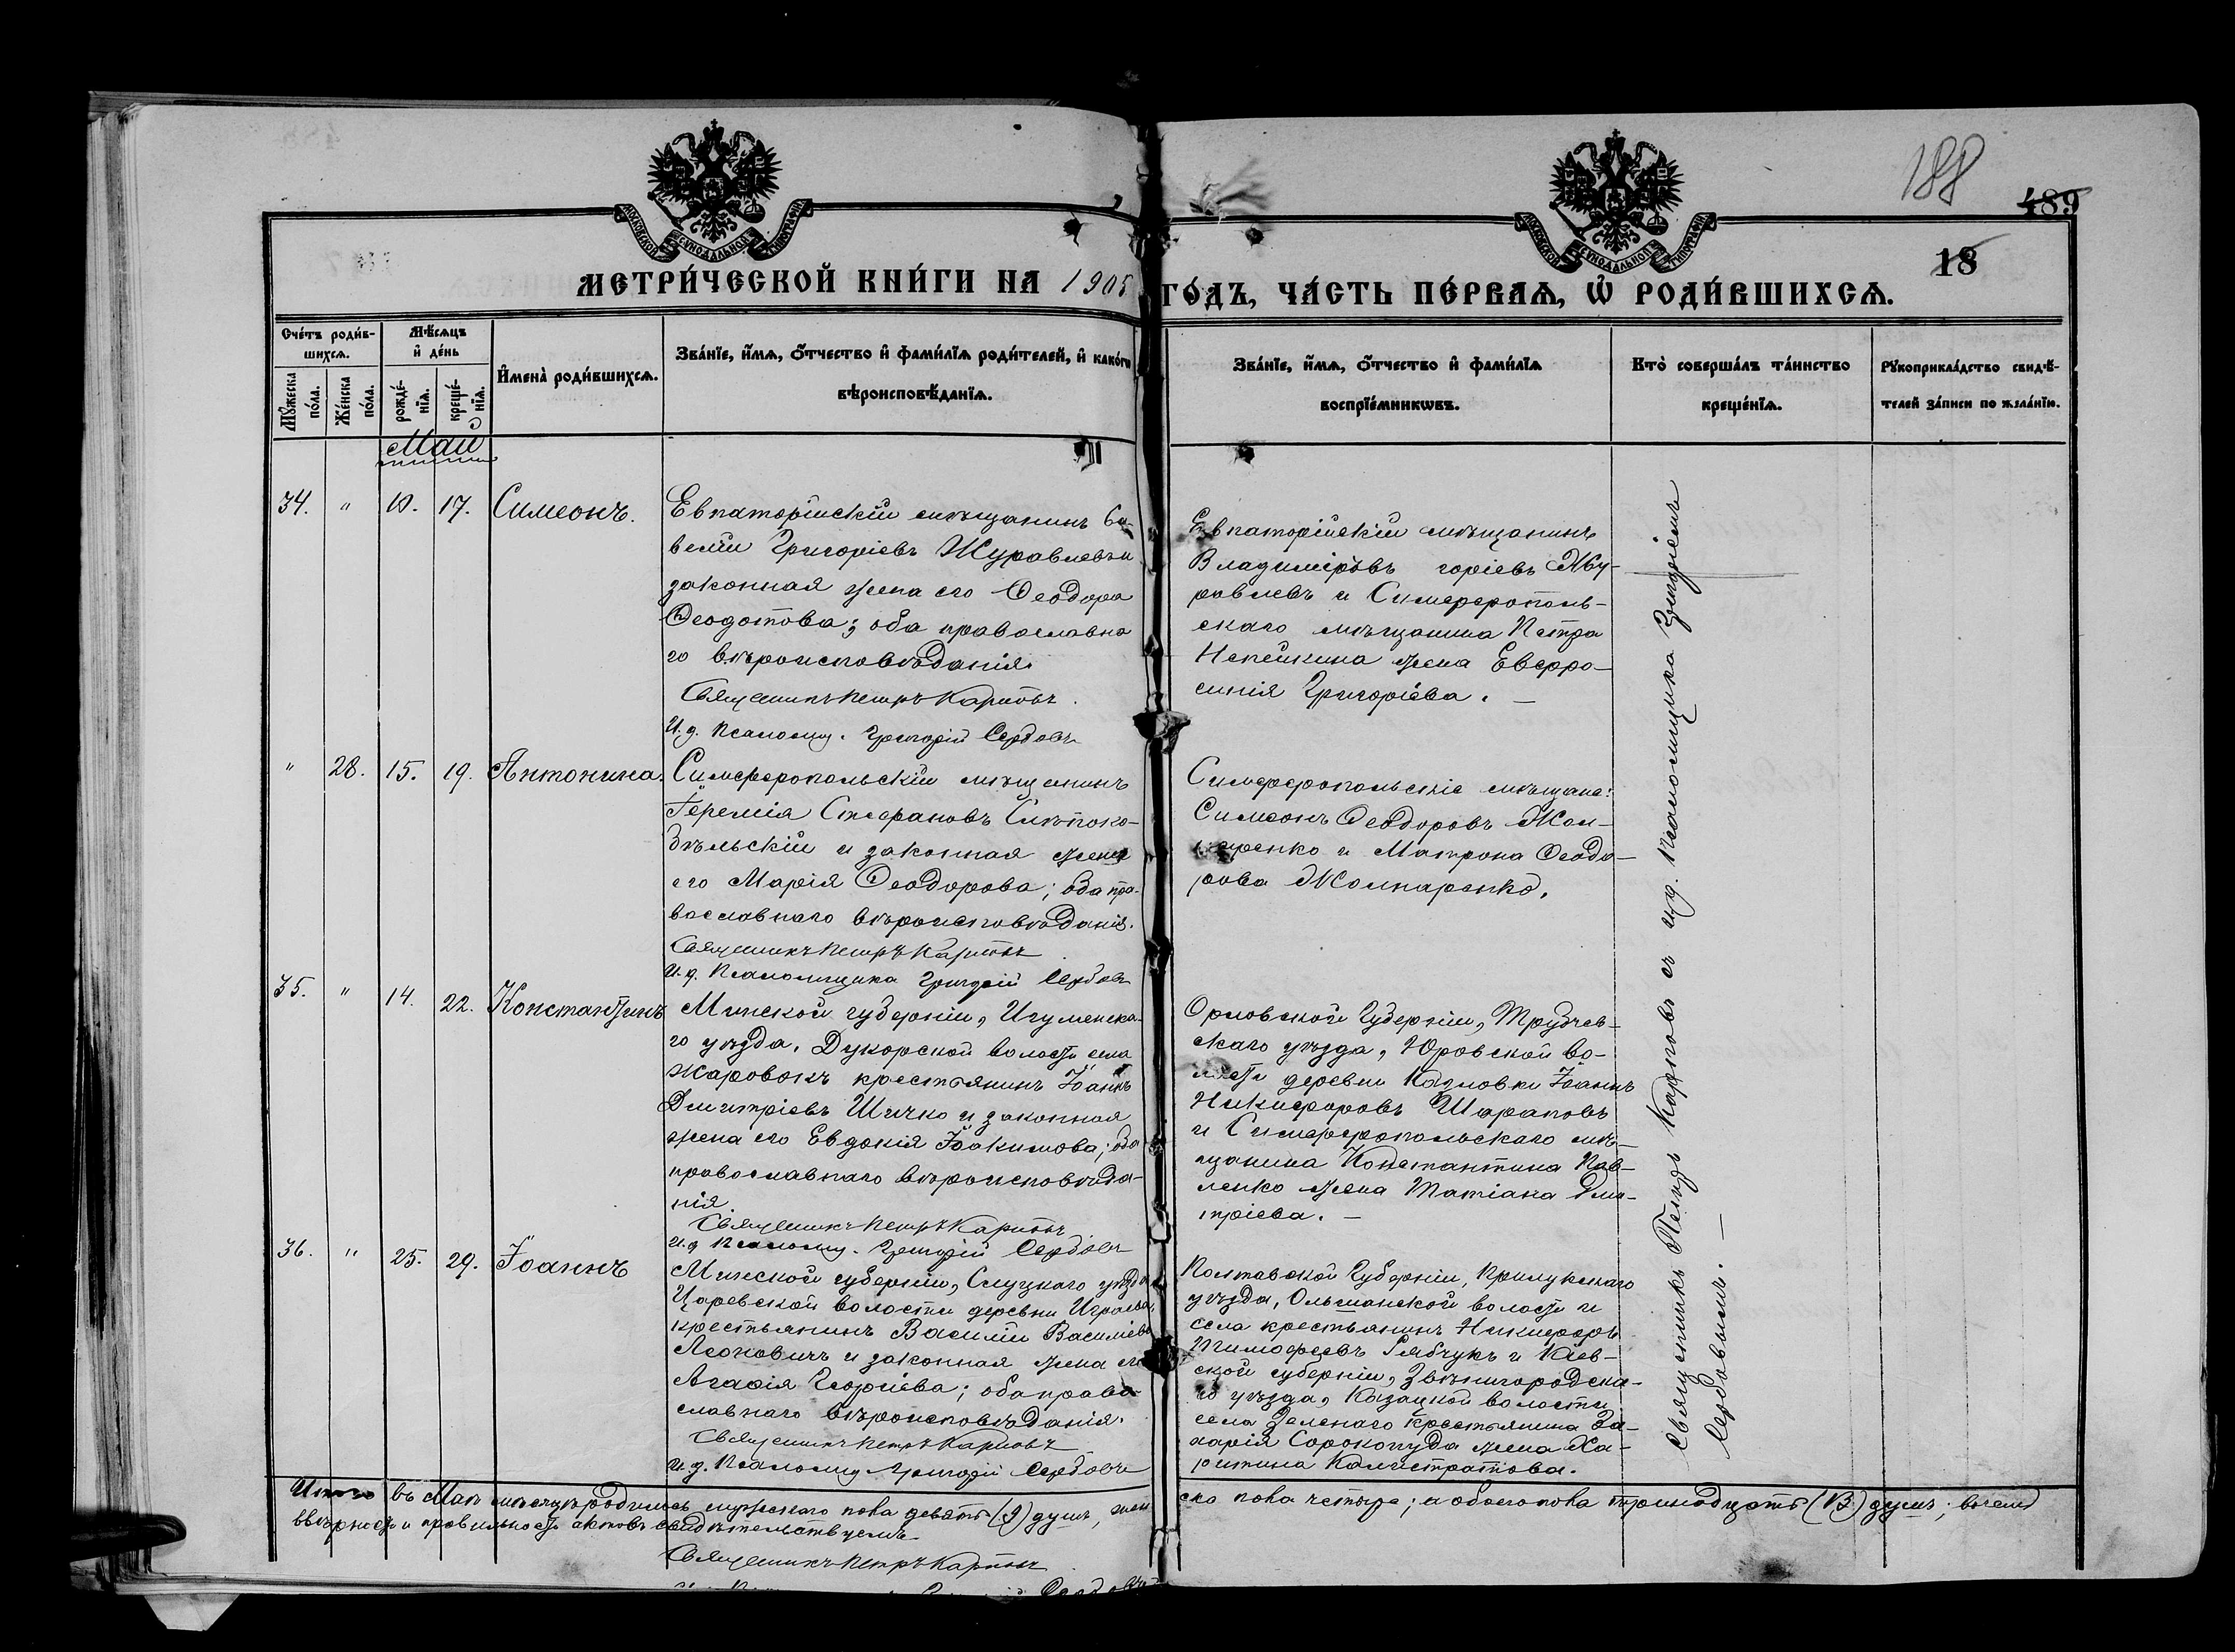 188
489
18
МОСКОВСКОЙ СУНОДАЛЬНОЙ ТИПОГРАФІИ
МОСКОВСКОЙ СУНОДАЛЬНОЙ ТИПОГРАФІИ
МЕТРИ́ЧЕСКОЙ КНИ́ГИ НА 1905 ГО́ДЪ, ЧА́СТЬ ПЕ́РВАѦ, Ѽ РОДИ́ВШИХСѦ.
Сче́тъ роди́в-
шихсѧ.
Мꙋ́жеска
по́ла.
Же́нска
по́ла.
Мѣ́сѧцъ
и҆ де́нь
рожде́-
нїѧ.
креще́-
нїѧ.
И҆мена̀ роди́вшихсѧ.
Зва́нїе, и҆́мѧ, ѻ҆́тчество и҆ фами́лїѧ роди́телей, и҆ како́гѡ
вѣроисповѣ́данїѧ.
Зва́нїе, и҆́мѧ, ѻ҆́тчество и҆ фами́лїѧ
воспрїе́мникѡвъ.
Кто̀ соверша́лъ та́инство
креще́нїѧ.
Рꙋкоприкла́дство свидѣ́-
телей за́писи по жела́нїю.
Май
34. " 10. 17. Симеонъ.
Евпаторійскій мѣщанинъ Са-
велій Григоріевъ Журавлевъ и
законная жена его Ѳеодора
Ѳеодотова; оба православна
го вѣроисповѣданія.
Священникъ Петръ Карповъ.
И. д. Псаломщ. Григорій Сердовъ
Евпаторійскій мѣщанинъ
Владиміровъ горіевъ Жу-
равлевъ и Симферополь-
скаго мѣщанина Петра
Непейкина жена Евфро-
синія Григоріева. —
" 28. 15. 19. Антонина.
Симферопольскій мѣщанинъ
Іеремія Стефановъ
и законная жена
его Марія Ѳеодорова; оба пра-
вославнаго вѣроисповѣданія.
Священникъ Петръ Карповъ
И. д. Псаломщика Григорій Сердовъ
Симферопольскіе мѣщане:
Симеонъ Ѳеодоровъ
и Матрона Ѳеодо-
рова
35. " 14. 22. Константинъ
Минской губерніи, Игуменска-
го уѣзда, Дукорской волости села
Жаровокъ крестьянинъ Іоаннъ
Димитріевъ Шичко и законная
жена его Евдокія Іоакимова; оба
православнаго вѣроисповѣда-
нія.
Священникъ Петръ Карповъ
И. д Псаломщ. Григорій Сердовъ
Орловской Губерніи, Трубчев-
скаго уѣзда, Юровской во-
лости деревни Козловки Іоаннъ
Никифоровъ Шараповъ
и Симферопольскаго мѣ-
щанина Константина Пав-
ленко жена Татіана Дми-
тріева. —
36. " 25. 29. Іоаннъ
Минской губерніи, Слуцкаго уѣзда
Царевской волости деревни
крестьянинъ Василій Василіевъ
Леоновичъ и законная жена его
Агафія Георгіева; оба право-
славнаго вѣроисповѣданія.
Священникъ Петръ Карповъ
И. д. Псаломщ Григорій Сердовъ
Полтавской Губерніи, Прилукскаго
уѣзда, Ольшанской волости и
села крестьянинъ Никифоръ
Тимофеевъ Рябчукъ и Кіев-
ской губерніи, Звенигородска-
го уѣзда, Козацкой волости
села Зеленаго крестьянина За-
харія Сорокопуда жена Ха-
ритина Калистратова.
Священникъ Петръ Карповъ съ и. д. Псаломщика Григоріемъ
Сердовымъ. —
Итого въ Маѣ мѣсяцѣ родилось мужескаго пола девять (9) душъ, жен
ска пола четыре; а обоего пола тринадцать (13) душъ; въ чемъ
вѣрность и правильность актовъ свидѣтельствуемъ
Священникъ Петръ Карповъ